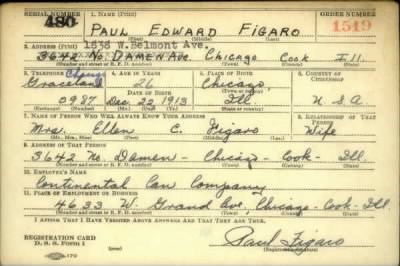 SERIAL NUMBER 1. NAME (Print) ORDER NUMBER
480 PAUL EDWARD FIGARO 1519
(First) (Middle) (Last)
1838 W. Belmont Ave.
2. ADDRESS (Print)
3642 No. DAMEN AVE. Chicago Cook Ill
(Number and street or R. F. D. number) (Town) (County) (State)
3. TELEPHONE 4. AGE IN YEARS 5. PLACE OF BIRTH 6. COUNTRY OF CITIZENSHIP
Graceland 26 Chicago,
DATE OF BIRTH (Town or county)
0987 Dec. 22 1913 Ill. U. S. A
(Exchange) (No.) (Mo.) (Day) (Yr.) (State or country)
7. NAME OF PERSON WHO WILL ALWAYS KNOW YOUR ADDRESS 8. RELATIONSHIP OF THAT PERSON
Mrs. Ellen C. Figaro Wife
(Mr., Mrs., Miss) (First) (Middle) (Last)
9. ADDRESS OF THAT PERSON
3642 N. Damen - Chicago - Cook - Ill.
(Number and street or R. F. D. number) (Town) (County) (State)
10. EMPLOYER'S NAME
Continental Can Company
11. PLACE OF EMPLOYMENT OR BUSINESS
4633 W. Grand Ave, Chicago - Cook - Ill
(Number and street or R. F. D. number) (Town) (County) (State)
I AFFIRM THAT I HAVE VERIFIED ABOVE ANSWERS AND THAT THEY ARE TRUE.
REGISTRATION CARD
D. S. S. Form 1 Paul Figaro
(Registrant's signature)